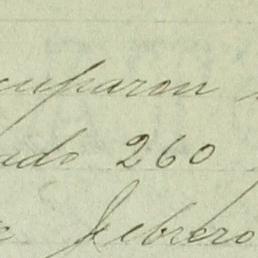 cuparon
ado 260
Febrero